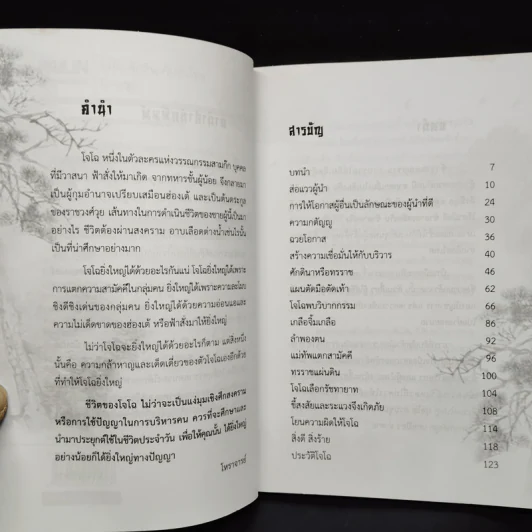 คำนำ
โจโฉ หนึ่งในตัวละครแห่งวรรณกรรมสามก๊ก บุคคล
ที่มีวาสนา ฟ้าสั่งให้มาเกิด จากทหารชั้นผู้น้อย จึงกลายมา
เป็นผู้กุมอำนาจเปรียบเสมือนฮ่องเต้ และเป็นต้นตระกูล
ของราชวงศ์วุย เส้นทางในการดำเนินชีวิตของชายผู้นี้เป็นมา
อย่างไร ชีวิตต้องผ่านสงคราม อาบเลือดต่างน้ำเช่นไรนั้น
เป็นที่น่าศึกษาอย่างมาก
โจโฉยิ่งใหญ่ได้ด้วยอะไรกันแน่ โจโฉยิ่งใหญ่ได้เพราะ
การแตกความสามัคคีในกลุ่มคน ยิ่งใหญ่ได้เพราะความโลภ
ชิงดีชิงเด่นของกลุ่มคน ยิ่งใหญ่ได้ด้วยความอ่อนแอและ
ความไม่เด็ดขาดของฮ่องเต้ หรือฟ้าสั่งมาให้ยิ่งใหญ่
ไม่ว่าโจโฉจะยิ่งใหญ่ได้ด้วยอะไรก็ตาม แต่สิ่งหนึ่ง
นั้นคือ ความกล้าหาญและเด็ดเดี่ยวของตัวโจโฉเองอีกด้วย
ที่ทำให้โจโฉยิ่งใหญ่
ชีวิตของโจโฉ ไม่ว่าจะเป็นแง่มุมเชิงศึกสงคราม
หรือการใช้ปัญญาในการบริหารคน ควรที่จะศึกษาและ
นำมาประยุกต์ใช้ในชีวิตประจำวัน เพื่อให้คุณนั้น ได้ยิ่งใหญ่
อย่างน้อยก็ได้ยิ่งใหญ่ทางปัญญา
โหราจารย์
สารบัญ
บทนำ 7
ส่อแววผู้นำ 10
การให้โอกาสผู้อื่นเป็นลักษณะของผู้นำที่ดี 24
ความกตัญญู 30
ฉวยโอกาส 36
สร้างความเชื่อมั่นให้กับบริวาร 40
ศักดินาหรือทรราช 46
แผนตัดมือตัดเท้า 62
โจโฉพบวิบากกรรม 66
เกลือจิ้มเกลือ 86
ลำพองตน 92
แม่ทัพแตกสามัคคี 96
ทรราชแผ่นดิน 100
โจโฉเลือกรัชทายาท 104
ขี้สงสัยและระแวงจึงเกิดภัย 108
โยนความผิดให้โจโฉ 114
สิ่งดี สิ่งร้าย 118
ประวัติโจโฉ 123